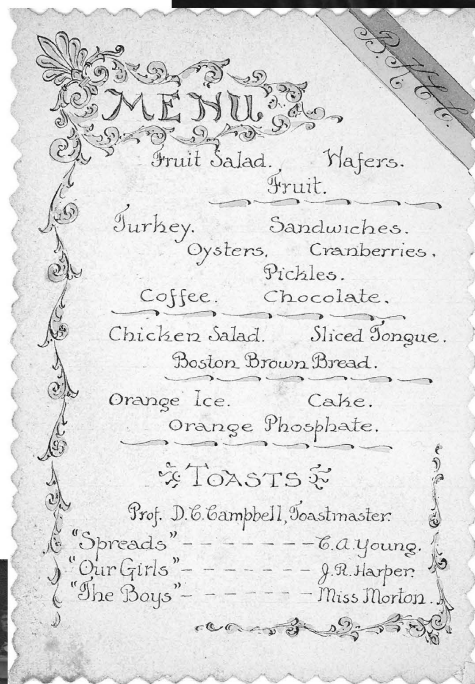 MENU
Fruit Salad. Wafers.
Fruit.
Turkey. Sandwiches.
Oysters. Cranberries.
Pickles.
Coffee. Chocolate.
Chicken Salad. Sliced Tongue.
Boston Brown Bread.
Orange Ice. Cake.
Orange Phosphate.
TOASTS
Prof. D.C. Campbell, Toastmaster.
"Spreads" - - - - - - - C.A. Young.
"Our Girls" - - - - - - J.R. Harper.
"The Boys" - - - - - - Miss Morton.